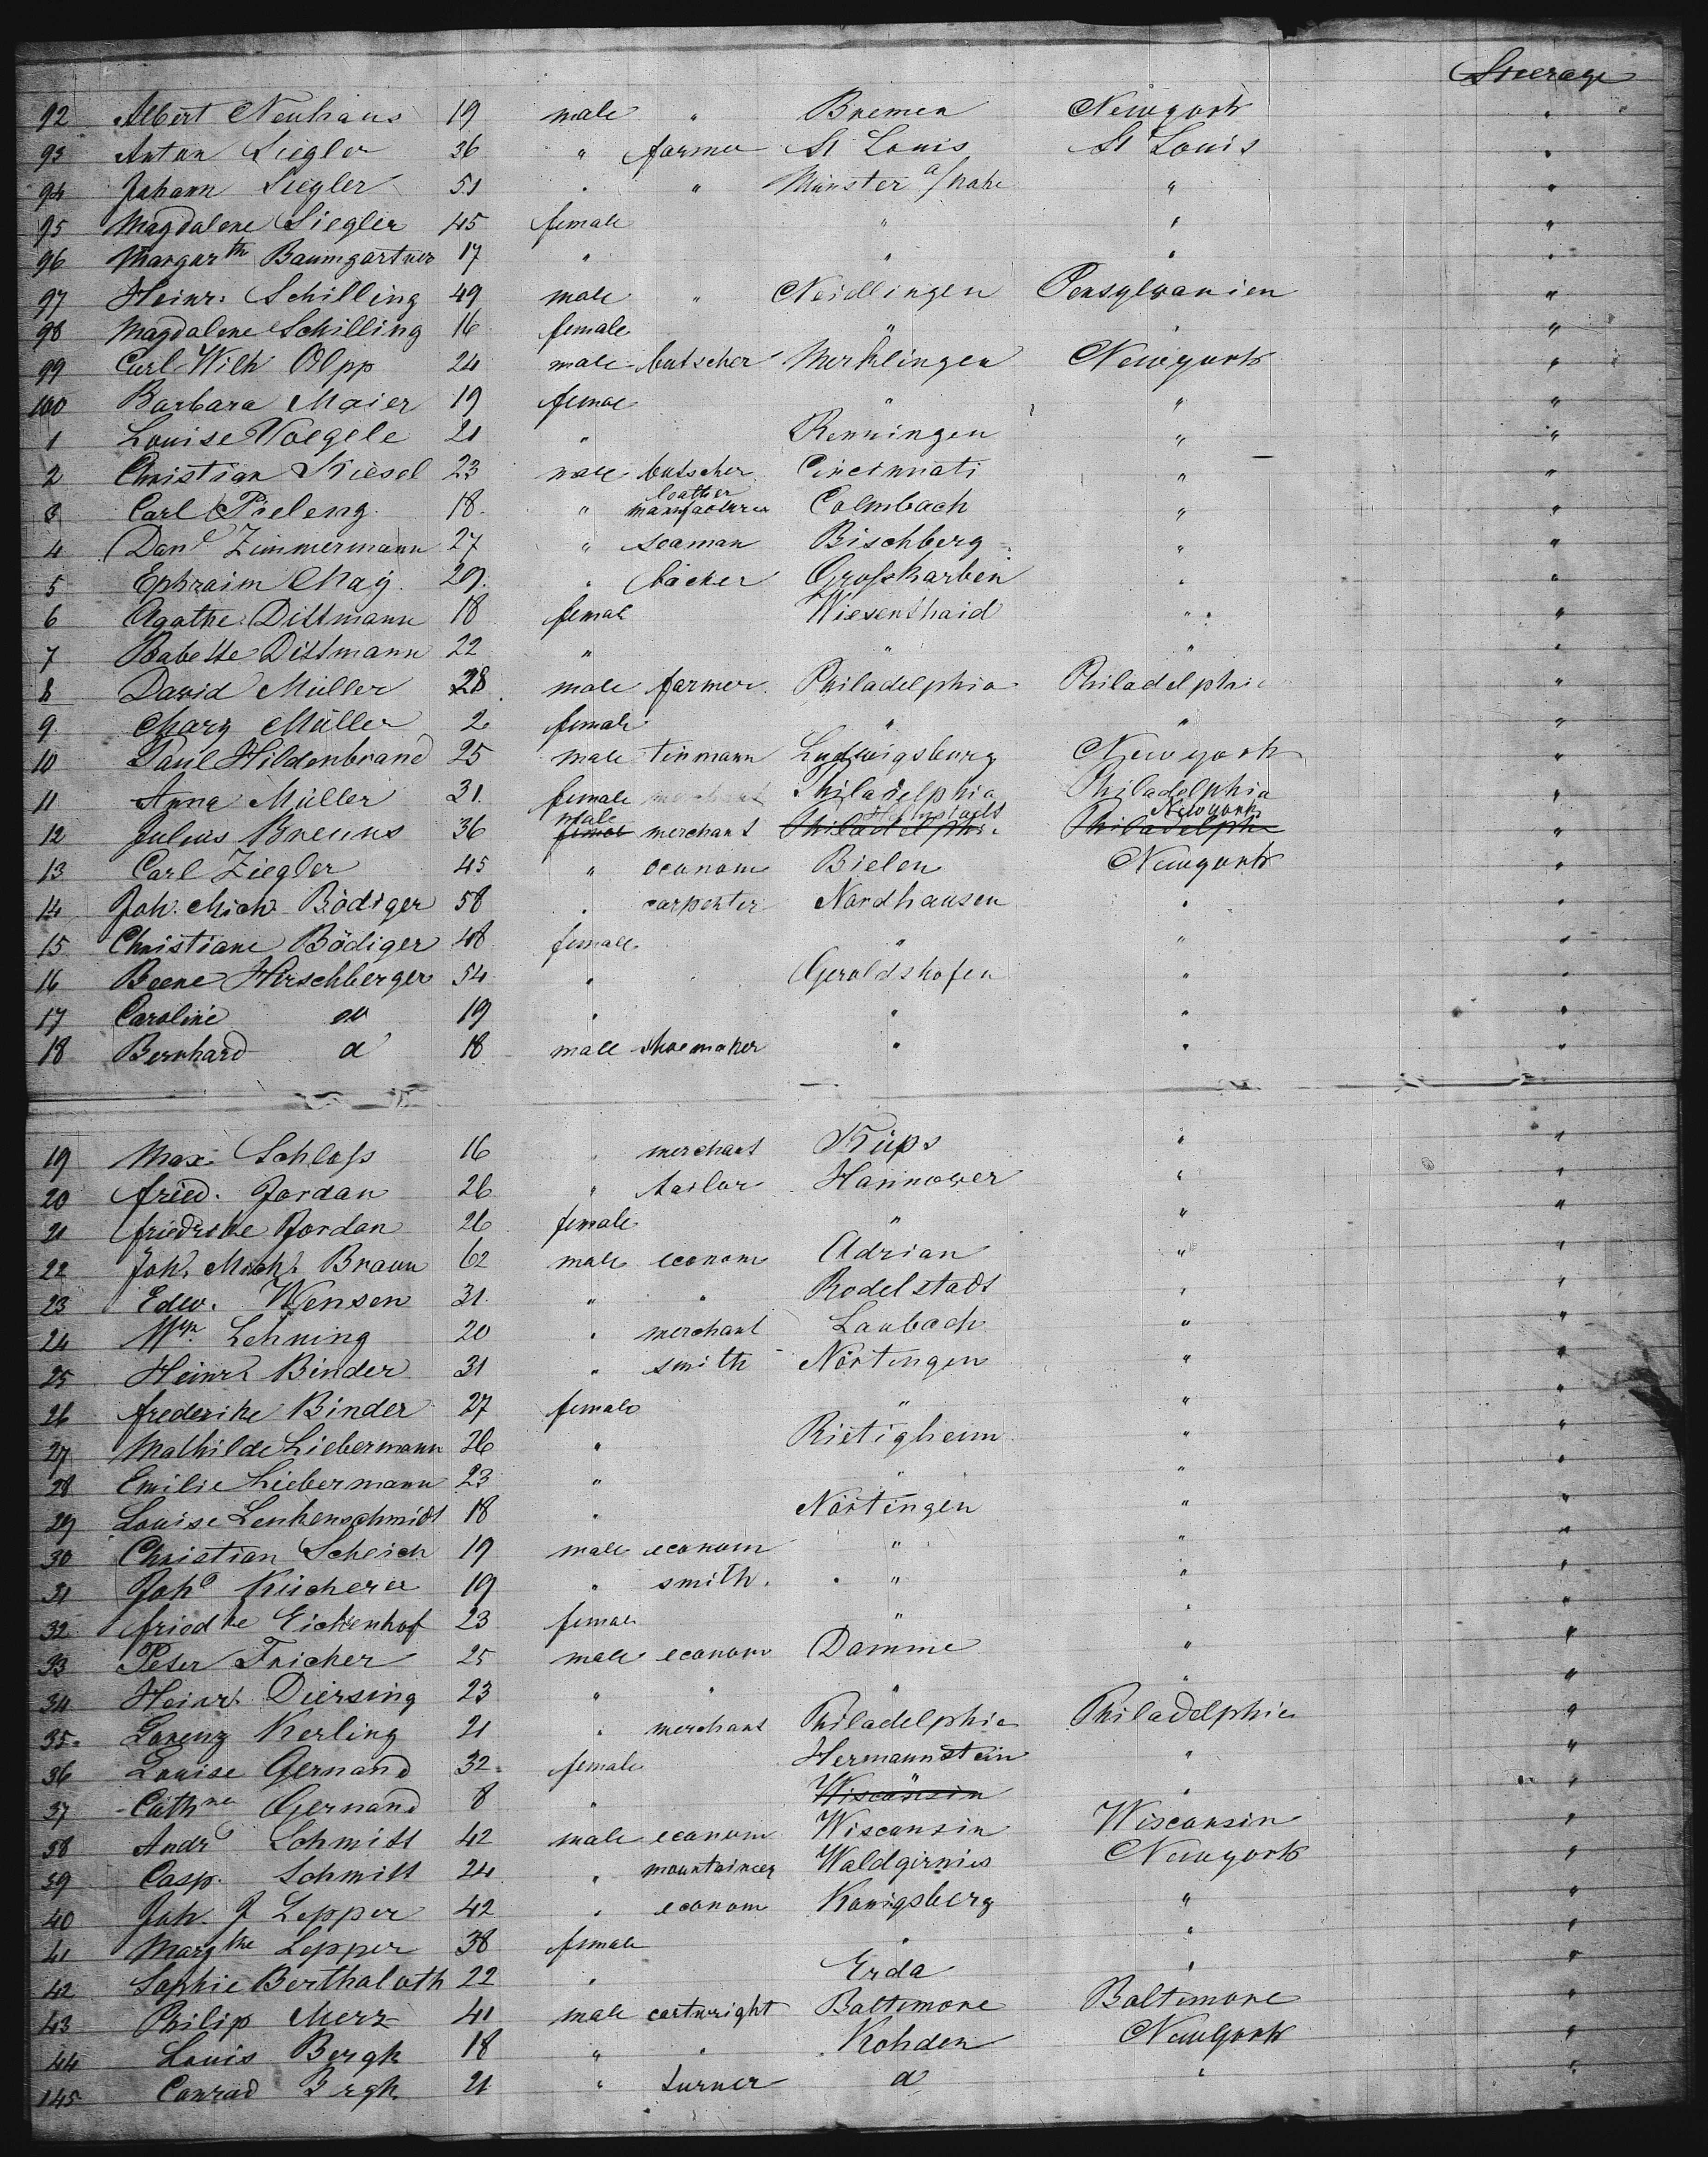 Steerage
92 Albert Neuhaus 19 male " Bremen Newyork "
93 Anton Siegler 36 " farmer St Louis St Louis "
94 Johann Siegler 51 " " Münster a/Nahe " "
95 Magdalene Siegler 45 female " " "
96 Margarth Baumgartner 17 " " " "
97 Heinr. Schilling 49 male " Neidlingen Pensylvanien "
98 Magdalene Schilling 16 female " " "
99 Carl Wilh Olpp 24 male butscher Merklingen Newyork "
100 Barbara Maier 19 femae " " "
1 Louise Voegele 21 " Renningen " "
2 Christian Kiesel 23 male butscher Cincinnati " "
leather
3 Carl 18 " Colmbach " "
4 Danl Zimmermann 27 " seaman Bischberg " "
5 Ephraim May 29 " bäcker Grosskarben " "
6 Agathe Dittmann 18 femal Wiesenthaid " "
7 Babette Dittmann 22 " " " "
8 David Müller 28 male farmer Philadelphia Philadelphia "
9 Mary Müller 2 female " " "
10 Paul Hildenbrand 25 male tinmann Ludwigsburg Newyork "
11 Anna Müller 31 female merchant Philadelphia Philadelphia "
male Newyork
12 Julius Breuns 36 femal merchant Philadelphia Philadelphia "
13 Carl Ziegler 45 " oconom Bielen Newyork "
14 Joh. Mich. Bödiger 58 " carpenter Nordhausen " "
15 Christiane Bödiger 48 female " " "
16 Beene Hirschberger 54 " Geroldshofen " "
17 Caroline do 19 " " " "
18 Bernhard d 18 male shoemaker " " "
19 Max Schloss 16 " merchant Küps " "
20 Fried. Jordan 26 " tailor Hannover " "
21 Friedrike Jordan 26 female " " "
22 Joh. Mich. Braun 62 male econom Adrian " "
23 Edw. Wensen 31 " " Rodelstadt " "
24 Wm Lehning 20 " merchant Laubach " "
25 Heinr. Binder 31 " smith Nörtingen " "
26 Frederike Binder 27 female " " "
27 Mathilde Liebermann 26 " Bietigheim " "
28 Emilie Liebermann 23 " " " "
29 Louise Lenkenschmidt 18 " Nörtingen " "
30 Christian Scheich 19 male econom " " "
31 Joha Kücherer 19 " smith. " " "
32 Friedke Eichenhof 23 female " " "
33 Peter Fricher 25 male econom Damme " "
34 Heinr. Diersing 23 " " " " "
35 Lorenz Kerling 21 " merchant Philadelphia Philadelphia "
36 Louise Gernand 32 female Hermannstein " "
37 Cathne Gernand 8 " Wisconsin " "
38 Andr Schmitt 42 male econom Wisconsin Wisconsin "
39 Casp. Schmitt 24 " mountaineer Waldgirmes Newyork "
40 Joh. J Lepper 42 " econom Konigsberg " "
41 Margthe Lepper 38 female " " "
42 Sophie Berthaloth 22 " Erda " "
43 Philip Merz 41 male cartwright Baltimore Baltimore "
44 Louis Bergk 18 " " Rohden Newyork "
145 Conrad Bergk 21 " turner d " "